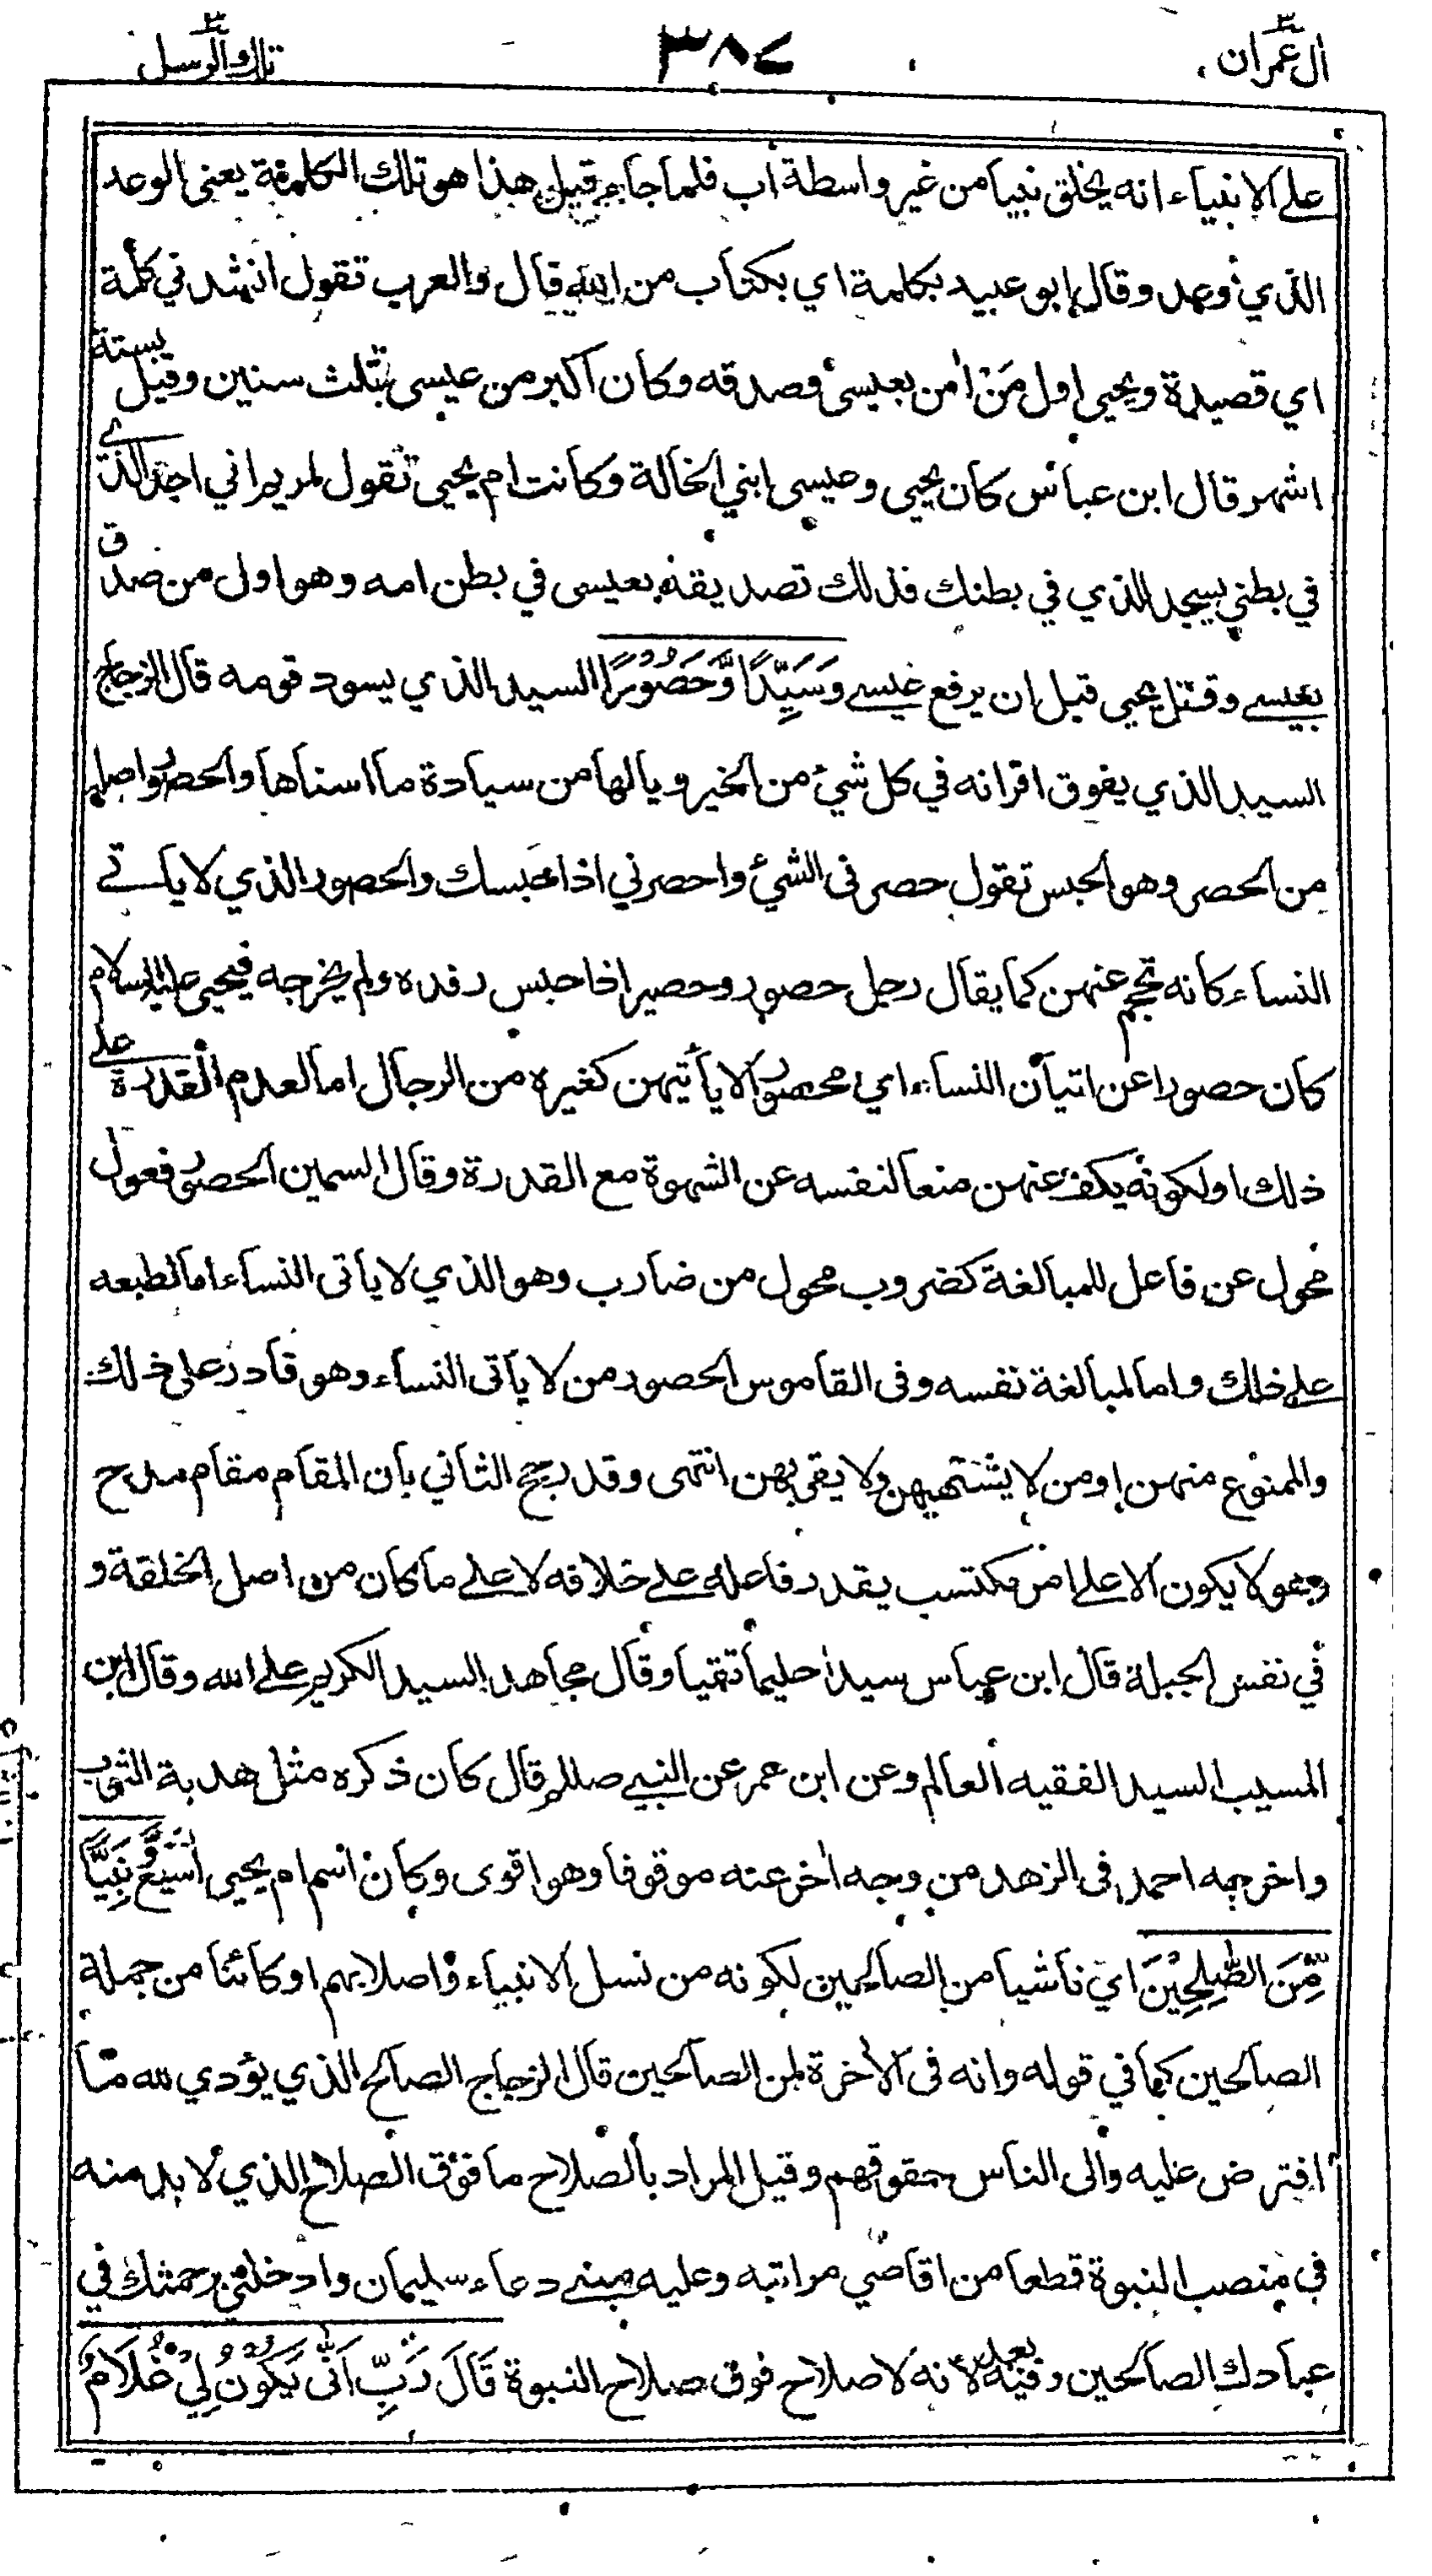 ال عمران ٣
٣٨٤
تلك الرسل ٣
على الانبياء انه يخلق نبيا من غير واسطة اب فلما جاء قيل هذا هو تلك الكلمة يعني الوعد
الذي وعد وقال ابو عبيد بكلمة اي بكتاب من الله قال والعرب تقول انشد في كلمة
اي قصيدة ويحيى اول مَنْ اٰمن بعيسى وصدقه وكان اكبر من عيسى بثلث سنين وقيل بستة
اشهر قال ابن عباس كان يحيى وعيسى ابني الخالة وكانت ام يحيى تقول لمريم اني اجد الذي
في بطني يسجد للذي في بطنك فذلك تصديقه بعيسى في بطن امه وهو اول من صدق
بعيسى وقتل يحيى قبل ان يرفع عيسى وَسَيِّدًا وَّحَصُوْرًا السيد الذي يسود قومه قال الزجاج
السيد الذي يفوق اقرانه في كل شيء من الخير ويا لها من سيادة ما اسناها والحصور اصله
من الحصر وهو الحبس تقول حصرني الشيء واحصرني اذا حبسك والحصور الذي لا يأتي
النساء كانه يحجم عنهن كما يقال رجل حصور وحصير اذا حبس رفده ولم يخرجه فيحيى عليه السلام
كان حصورا عن اتيان النساء اي محصورا لا يأتيهن كغيره من الرجال اما لعدم القدرة على
ذلك او لكونه يكف عنهن منعا لنفسه عن الشهوة مع القدرة وقال السمين الحصور فعول
محول عن فاعل للمبالغة كضروب محول من ضارب وهو الذي لا يأتى النساء اما لطبعه
على ذلك واما لمبالغة نفسه وفى القاموس الحصور من لا يأتى النساء وهو قادر على ذلك
والممنوع منهن او من لا يشتهيهن ولا يقربهن انتهى وقد رجح الثاني بأن المقام مقام مدح
وهو لا يكون الا على امر مكتسب يقدر فاعله على خلافه لا على ما كان من اصل الخلقة و
في نفس الجبلة قال ابن عباس سيدا حليما تقيا وقال مجاهد السيد الكريم على الله وقال ابن
المسيب السيد الفقيه العالم وعن ابن عمر عن النبي صللم قال كان ذكره مثل هدبة الثوب
واخرجه احمد فى الزهد من وجه اٰخر عنه موقوفا وهو اقوى وكان اسم ام يحيى اشيع وَّنَبِيًّا
مِّنَ الصّٰلِحِيْنَ اي ناشيا من الصالحين لكونه من نسل الانبياء واصلابهم او كائنا من جملة
الصالحين كما في قوله وانه فى الاٰخرة لمن الصالحين قال الزجاج الصالح الذي يؤدي لله ما
افترض عليه والى الناس حقوقهم وقيل المراد بالصلاح ما فوق الصلاح الذي لا بد منه
في منصب النبوة قطعا من اقاصي مراتبه وعليه مبنى دعاء سليمان وادخلني برحمتك في
عبادك الصالحين وفيه بعد لانه لا صلاح فوق صلاح النبوة قَالَ رَبِّ اَنّٰى يَكُوْنُ لِيْ غُلَامٌ